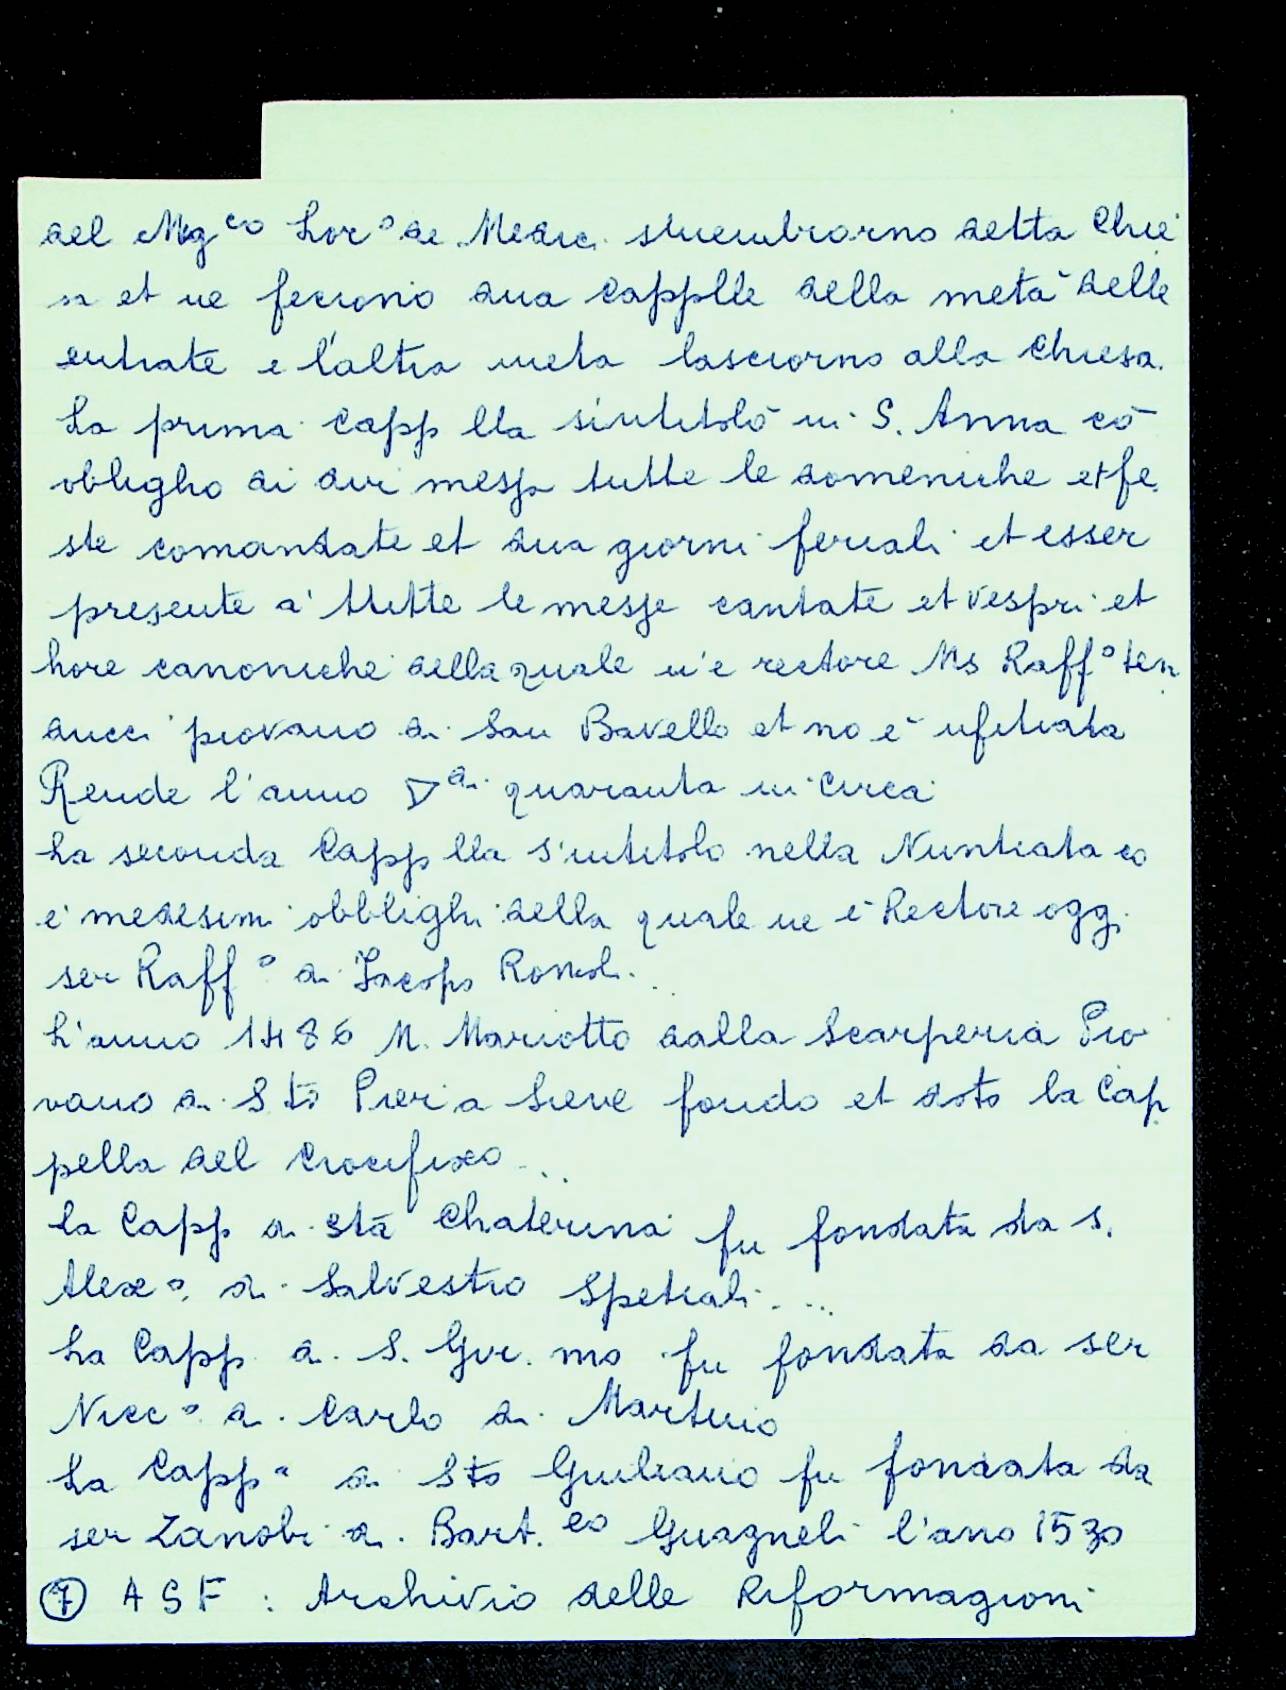 del Mg.co Lor° de Medici smembrorno detta Chie
sa et ne feciono dua capplle della metà delle
entrate e l'altra meta lasciorno alla Chiesa.
La prima Capp lla s'intitolò in S. Anna cō
obligho di dir messa tutte le domeniche et fe
ste comandate et dua giorni feriali et esser
presente a' ttutte le messe cantate et vespri et
hore canoniche della quale n'è rectore Ms Raff° ten
ducci piovano di San Bavello et no è ufitiata
Rende l'anno ▽di quaranta in circa
La seconda Capp lla s'intitolo nella Nuntiata co
e' medesimi obblighi della quale ne è Rectore oggi
ser Raff° di Jacopo Romoli.
L'anno 1486 M. Mariotto dalla Scarperia Pio
vano di Sto Pier a Sieve fondo et doto la Cap
pella del Crocifixo ...
la Capp di stā Chaterina fu fondata da s.
Alex° di Salvestro Spetiali ...
La Capp. di S. Gir.mo fu fondata da ser
Nicc° di Carlo di Martino
La Capp a di Sto Giuliano fu fondata da
ser Zanobi di Bart.eo Guagneli l'ano 1530
⑦ ASF : Archivio delle Riformagioni